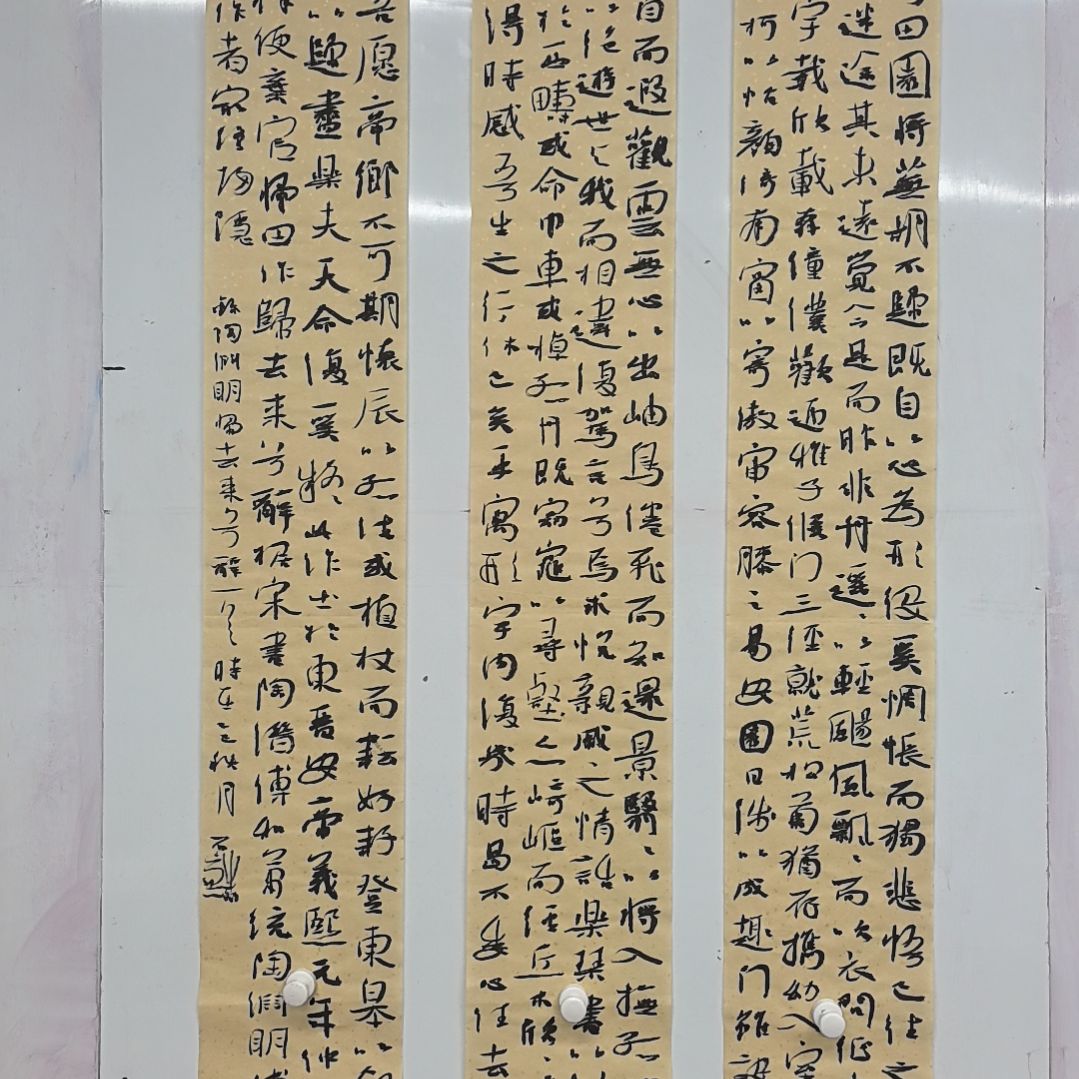 田園將蕪胡不歸既自以心為形役奚惆悵而獨悲悟已往之
迷途其未遠覺今是而昨非舟遥〻以輕颺風飄〻而吹衣問征
宇載欣載奔僮僕歡迎稚子候门三徑就荒松菊猶存攜幼入室
柯以怡顔倚南窗以寄傲審容膝之易安園日涉以成趣门雖設
首而遐觀雲無心以出岫鳥倦飛而知還景翳〻以將入撫孤
以绝遊世與我而相違復駕言兮焉求悅親戚之情話樂琴書以
於西疇或命巾車或棹孤舟既窈窕以尋壑亦崎嶇而經丘木欣
得時感吾生之行休已矣乎寓形宇内復幾時曷不委心任去
吾愿帝鄉不可期懷辰以孤往或植杖而耘籽登東皋以舒
以歸盡樂夫天命復奚疑此作出於東晉安帝義熙元年仲
便棄官歸田作歸去来兮辭据宋書陶潛傳和蕭統陶淵明傳
作者歸隱
錄陶淵明歸去来兮辭一時在之秋月